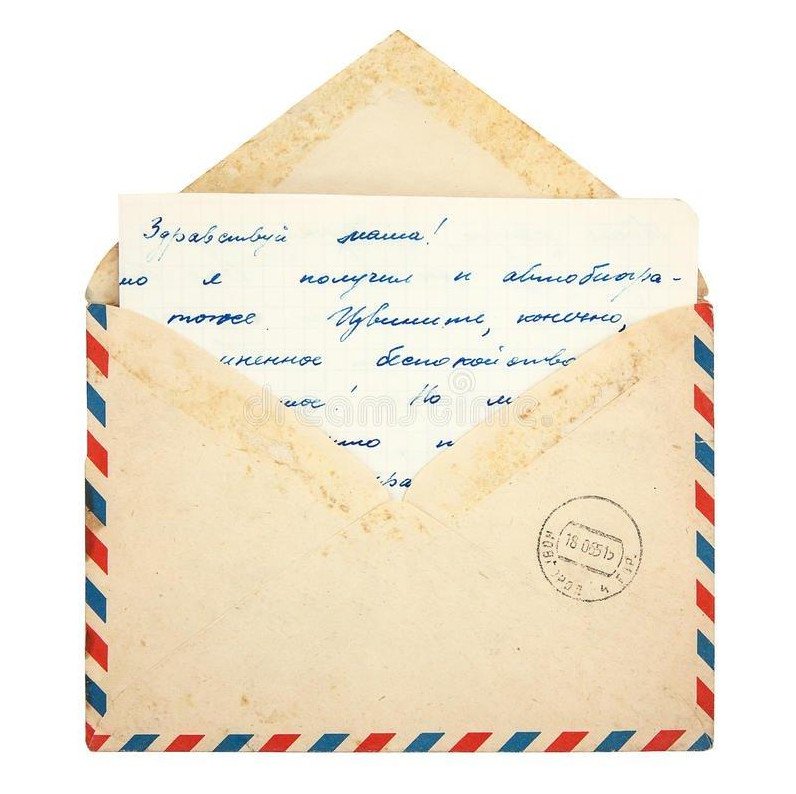 Здравствуй мама!
но я получил и автобиогра-
тоже. Извините, конечно,
иненное беспокойство
мое! Но м
имо п
ра
dreamstime
18-0655 15